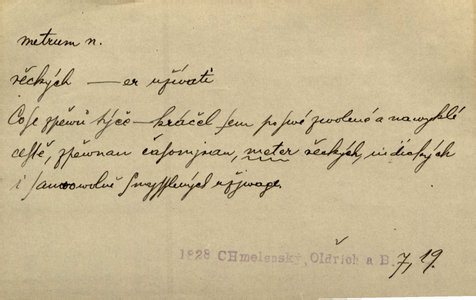 metrum n.
řeckých — er užívati
Co se zpěwů týče – kráčel sem po swé zwolené a nawyklé
cestě, zpěwnau časomjrau, meter řeckých, indických
i samowolně smysslených užjwage
1828 CHmelenský, Oldřich a B. 7, 19.